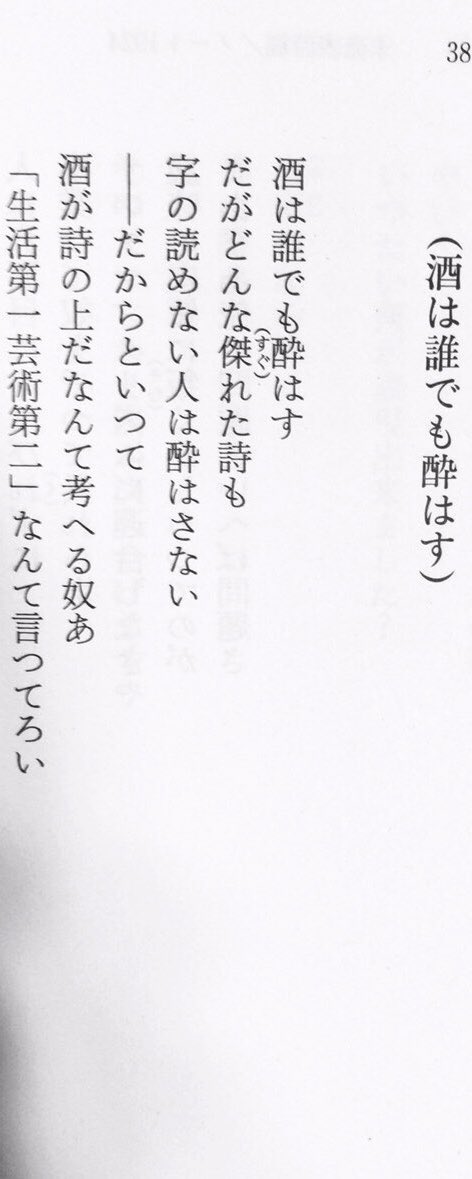 38
(酒は誰でも酔はす)
酒は誰でも酔はす
だがどんな傑(すぐ)れた詩も
字の読めない人は酔はさない
――だからといつて
酒が詩の上だなんて考へる奴あ
「生活第一芸術第二」なんて言つてろい